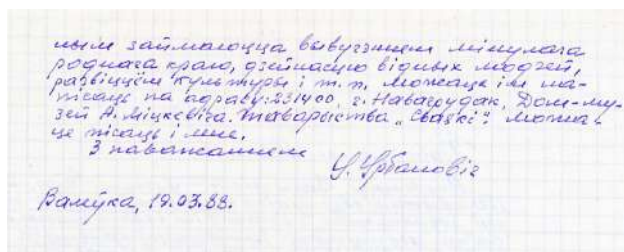 ным займаюцца вывучэннем мінулага
роднага краю, дзейнасцю відных людзей,
развіццём культуры і т.п. Можаце ім на-
пісаць па адрасу: 231400, г. Навагрудак, Дом-му-
зей А. Міцкевіча. Таварыства „Сваякі". Можа-
це пісаць і мне.
З паважаннем
У. Урбановіч
19.03.88.